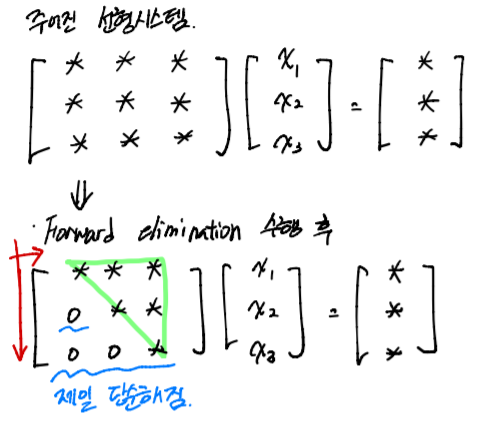 주어진 선형시스템.
[ * * * ] [ x₁ ] [ * ]
[ * * * ] [ x₂ ] = [ * ]
[ * * * ] [ x₃ ] [ * ]
⇓
· Forward elimination 수행 후
[ * * * ] [ x₁ ] [ * ]
[ 0 * * ] [ x₂ ] = [ * ]
[ 0 0 * ] [ x₃ ] [ * ]
제일 단순해짐.